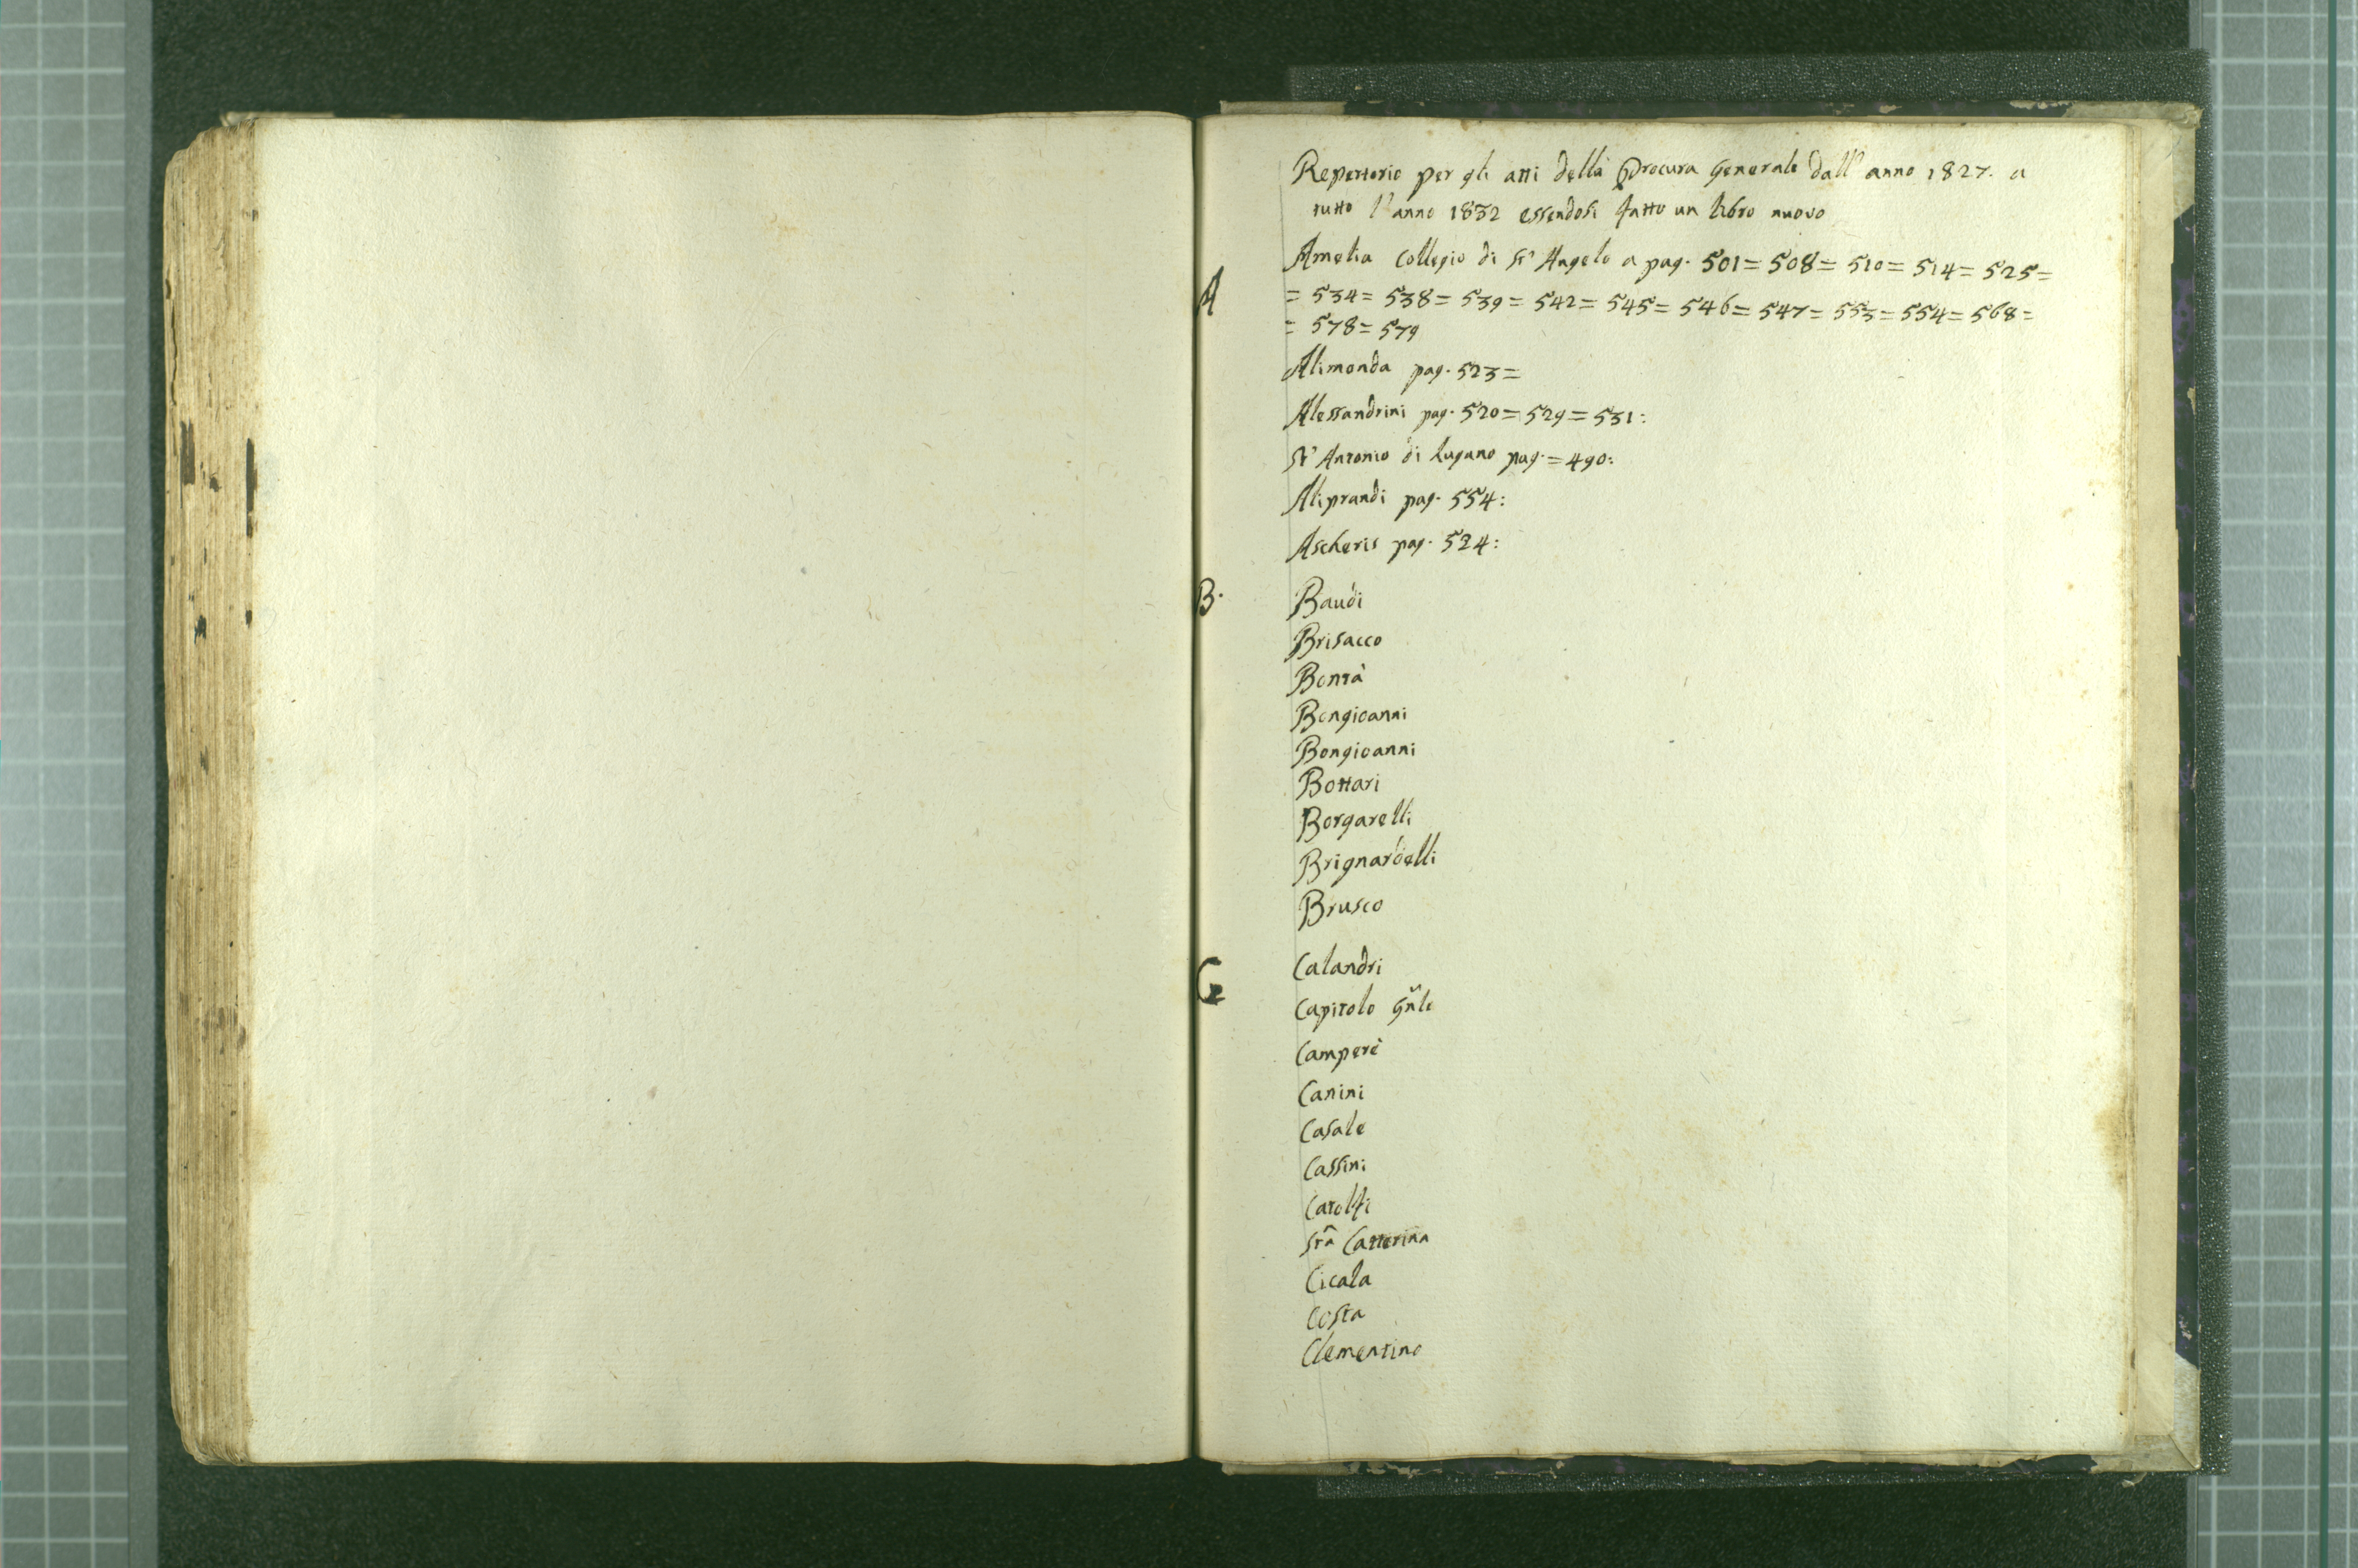 Repertorio per gli atti della Procura Generale dall' anno 1827. a
tutto l'anno 1832 essendosi fatto un libro nuovo
A
Amelia Collegio di St' Angelo a pag. 501= 508= 510= 514= 525=
= 534= 538= 539= 542= 545= 546= 547= 553= 554= 568=
= 578= 579
Alimonda pag. 523=
Alessandrini pag. 520= 529= 531:
St' Antonio di Lugano pag.= 490:
Aliprandi pag. 554:
Ascheris pag. 524:
B.
Baudi
Brisacco
Bontà
Bongioanni
Bongioanni
Bottari
Borgarelli
Brignardelli
Brusco
C
Calandri
Capitolo Gñle
Camperi
Canini
Casale
Cassini
Catolfi
Sta Catterina
Cicala
Costa
Clementino